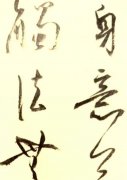 身意色
觸法無